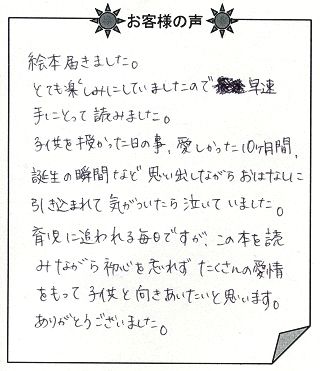 お客様の声
絵本届きました。
とても楽しみにしていましたので 早速
手にとって読みました。
子供を授かった日の事、愛しかった10ヶ月間、
誕生の瞬間など思い出しながらおはなしに
引き込まれて気がついたら泣いていました。
育児に追われる毎日ですが、この本を読
みながら初心を忘れずたくさんの愛情
をもって子供と向きあいたいと思います。
ありがとうございました。